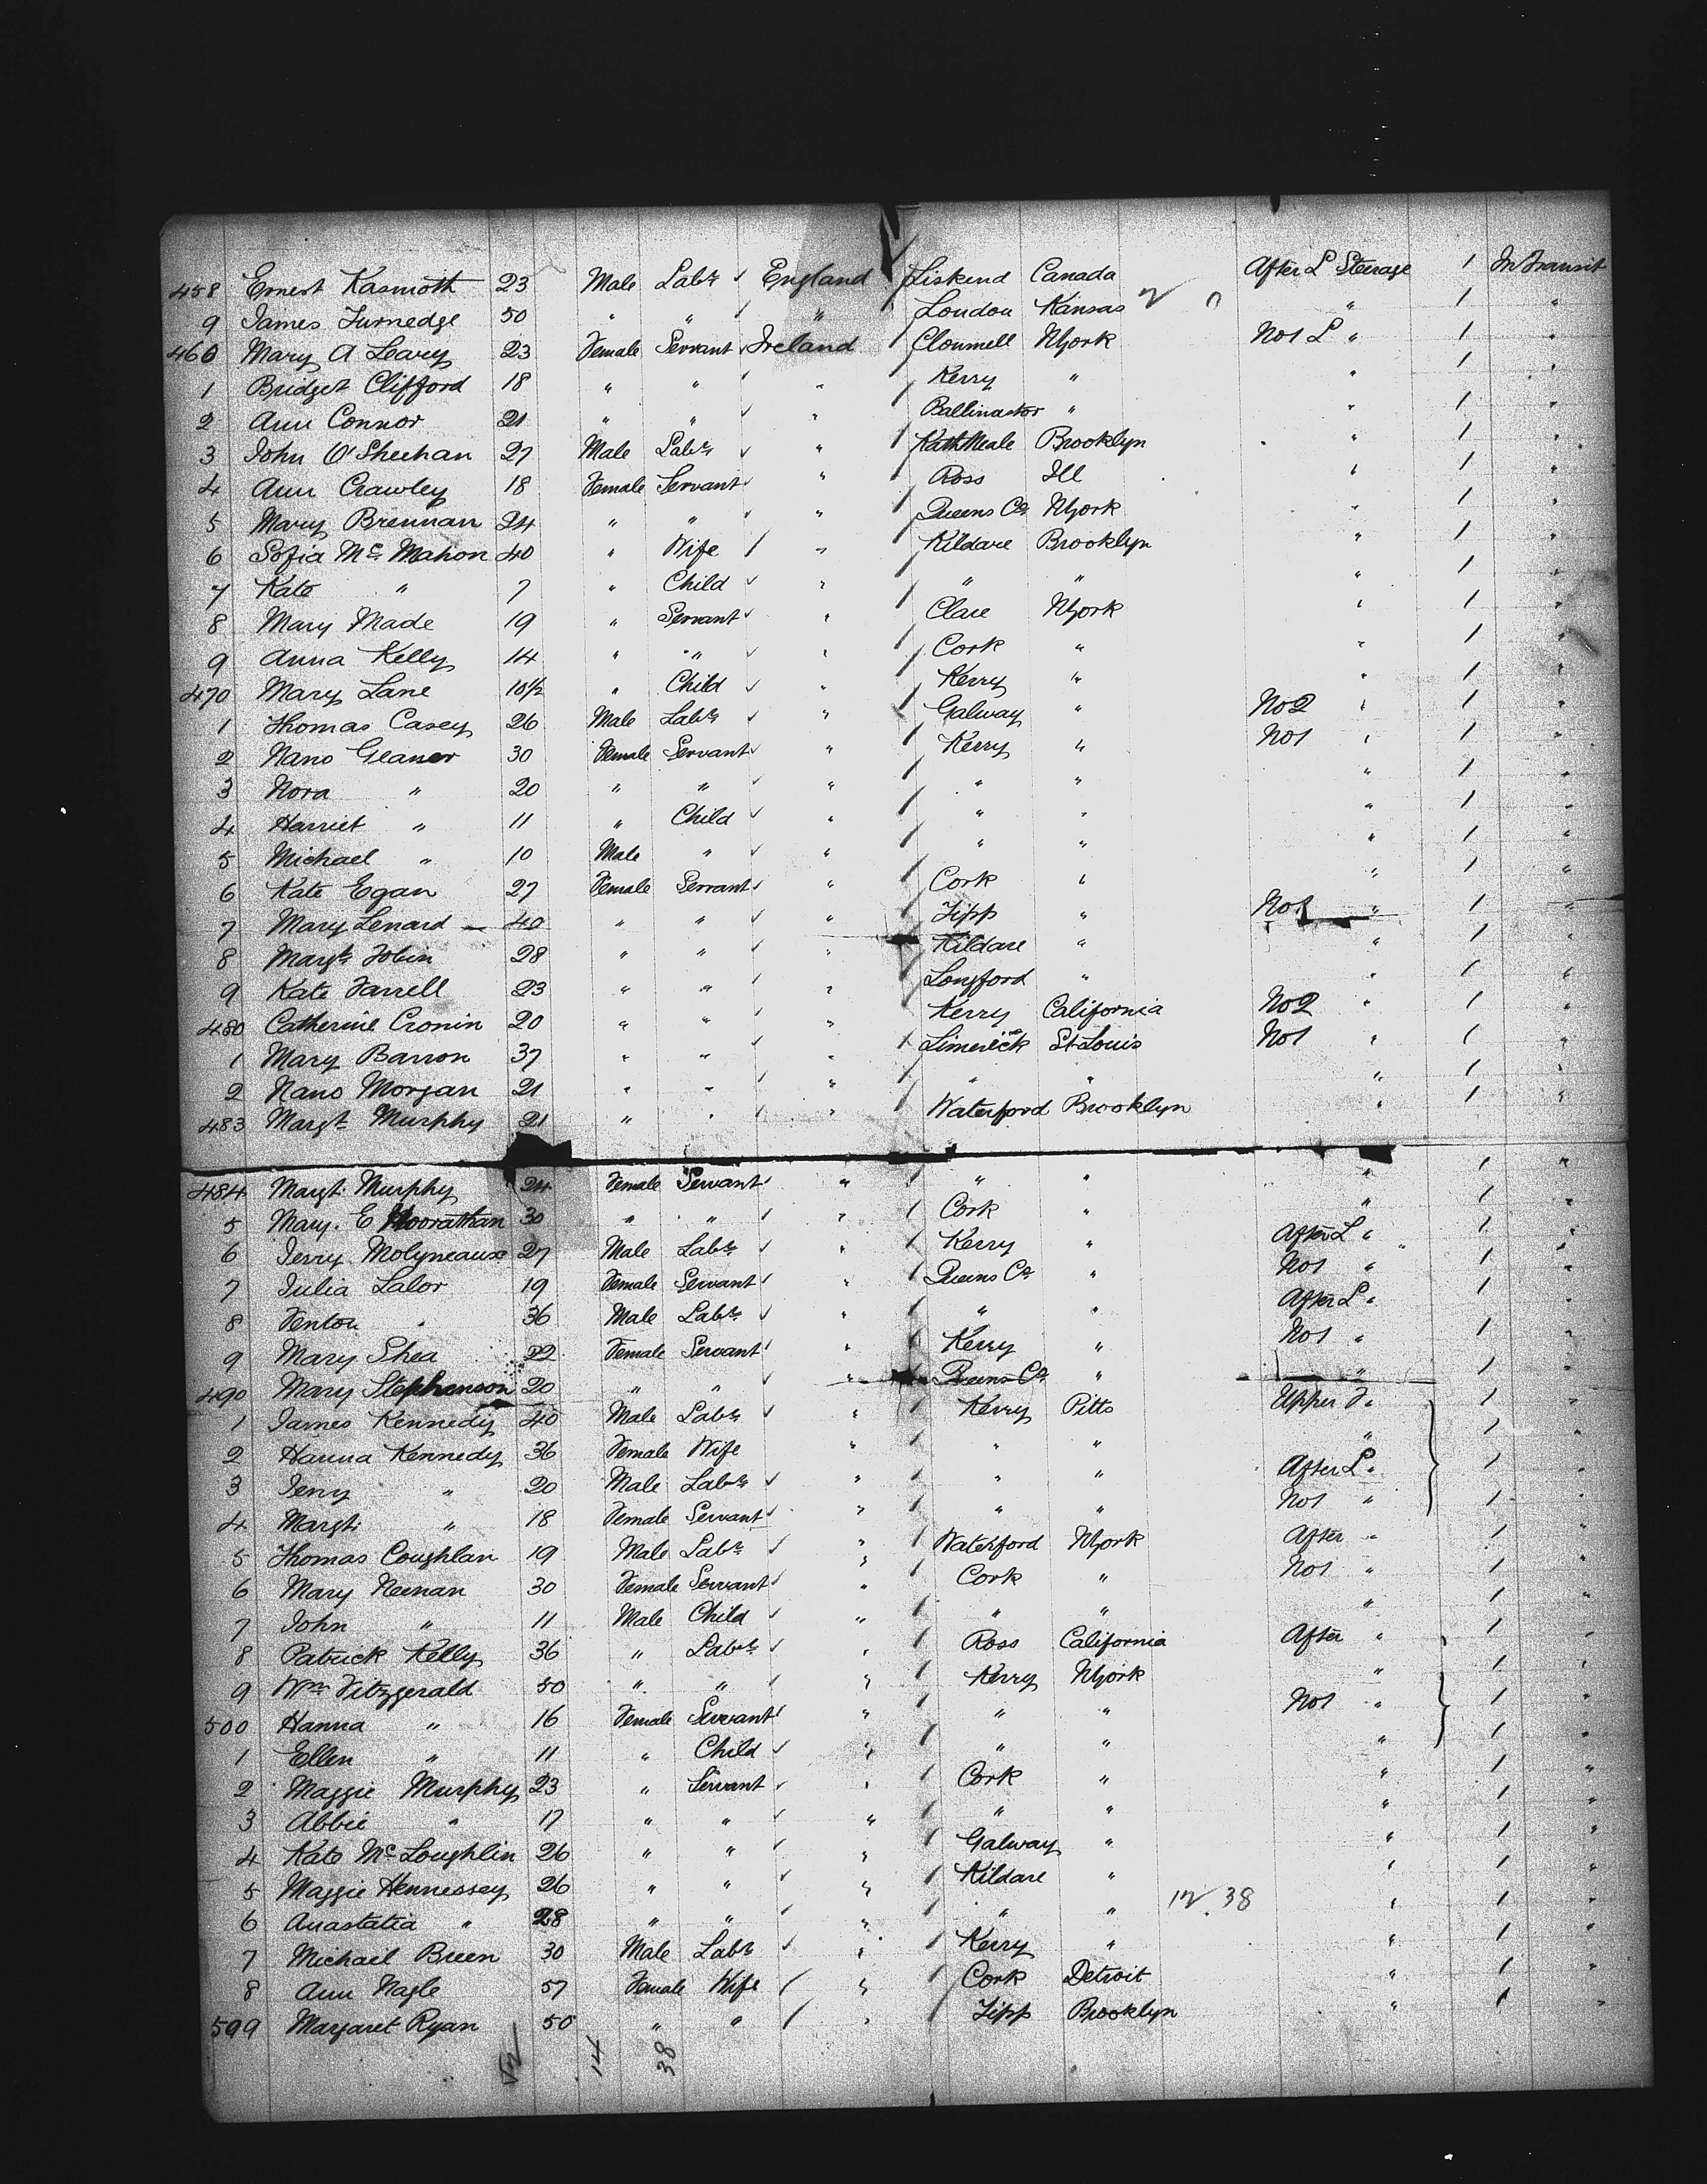 458 Ernest Kasmoth 23 Male Labr England Liskend Canada After L Steerage 1 In Transit
9 James Turnedge 50 " " " London Kansas " 1 "
460 Mary A Leary 23 Female Servant Ireland Clonmell NYork No1 L " 1 "
1 Bridget Clifford 18 " " " Kerry " " 1 "
2 Ann Connor 21 " " " Ballinastor " " 1 "
3 John O'Sheehan 27 Male Labr " RathKeale Brooklyn " 1 "
4 Ann Crawley 18 Female Servant " Ross Ill " 1 "
5 Mary Brennan 24 " " " Queens Co NYork " 1 "
6 Sofia Mc Mahon 40 " Wife " Kildare Brooklyn " 1 "
7 Kate " 7 " Child " " " " 1 "
8 Mary Made 19 " Servant " Clare NYork " 1 "
9 Anna Kelly 14 " " " Cork " " 1 "
470 Mary Lane 10½ " Child " Kerry " " 1 "
1 Thomas Casey 26 Male Labr " Galway " No2 " 1 "
2 Nano Gleaner 30 Female Servant " Kerry " No1 " 1 "
3 Nora " 20 " " " " " " 1 "
4 Harriet " 11 " Child " " " " 1 "
5 Michael " 10 Male " " " " " 1 "
6 Kate Egan 27 Female Servant " Cork " " 1 "
7 Mary Lenard 40 " " " Tipp " No1 " 1 "
8 Margt Tobin 28 " " " Kildare " " 1 "
9 Kate Farrell 23 " " " Longford " " 1 "
480 Catherine Cronin 20 " " " Kerry California No2 " 1 "
1 Mary Barron 37 " " " Limerick St Louis No1 " 1 "
2 Nano Morgan 21 " " " " " " 1 "
483 Margt Murphy 21 " " " Waterford Brooklyn " 1 "
484 Margt Murphy 24 Female Servant " " " " 1 "
5 Mary. E 30 " " " Cork " " 1 "
6 Jerry Molyneaux 27 Male Labr " Kerry " After L " 1 "
7 Julia Lalor 19 Female Servant " Queens Co " No1 " 1 "
8 Fenton " 36 Male Labr " " " After L " 1 "
9 Mary Shea 22 Female Servant " Kerry " No1 " 1 "
490 Mary Stephenson 20 " " " Queens Co " " 1 "
1 James Kennedy 40 Male Labr " Kerry Pitts Upper F " 1 "
2 Hanna Kennedy 36 Female Wife " " " " 1 "
3 Jerry " 20 Male Labr " " " After L " 1 "
4 Margt " 18 Female Servant " " " No1 " 1 "
5 Thomas Coughlan 19 Male Labr " Waterford NYork After " 1 "
6 Mary Neenan 30 Female Servant " Cork " No1 " 1 "
7 John " 11 Male Child " " " " 1 "
8 Patrick Kelly 36 " Labr " Ross California After " 1 "
9 Wm Fitzgerald 50 " " " Kerry NYork " 1 "
500 Hanna " 16 Female Servant " " " No1 " 1 "
1 Ellen " 11 " Child " " " " 1 "
2 Maggie Murphy 23 " Servant " Cork " " 1 "
3 Abbie " 17 " " " " " " 1 "
4 Kate McLoughlin 26 " " " Galway " " 1 "
5 Maggie Hennessey 26 " " " Kildare " " 1 "
6 Anastatia " 28 " " " " " 38 " 1 "
7 Michael Breen 30 Male Labr " Kerry " " 1 "
8 Ann Nagle 57 Female Wife " Cork Detroit " 1 "
509 Margaret Ryan 50 " " " Tipp Brooklyn " 1 "
14 38